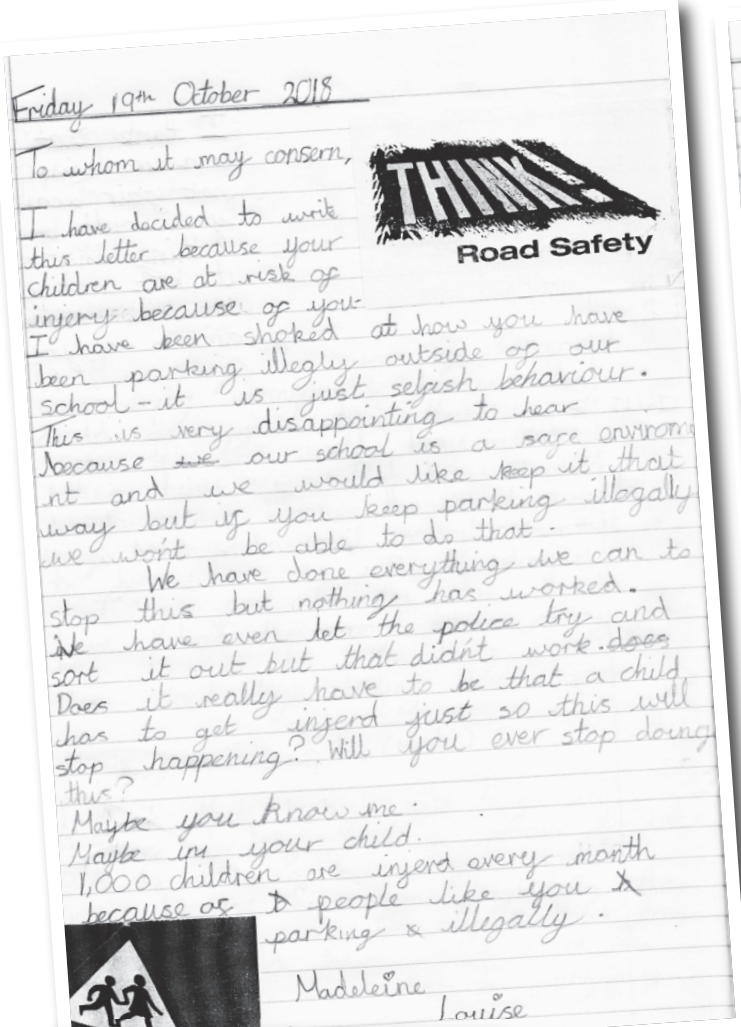 Friday 19th October 2018
To whom it may consern,
THINK!
Road Safety
I have decided to write
this letter because your
children are at risk of
injery because of you.
I have been shoked at how you have
been parking illegly outside of our
school - it is just selfish behaviour.
This is very disappointing to hear
because we our school is a safe envirome
nt and we would like keep it that
way but if you keep parking illegally
we won't be able to do that.
We have done everything we can to
stop this but nothing has worked.
We have even let the police try and
sort it out but that didn't work. does
Does it really have to be that a child
has to get injerd just so this will
stop happening? Will you ever stop doing
this?
Maybe you know me.
Maybe im your child.
1,000 children are injerd every month
because of people like you
parking illegally.
Madeleine
Louise